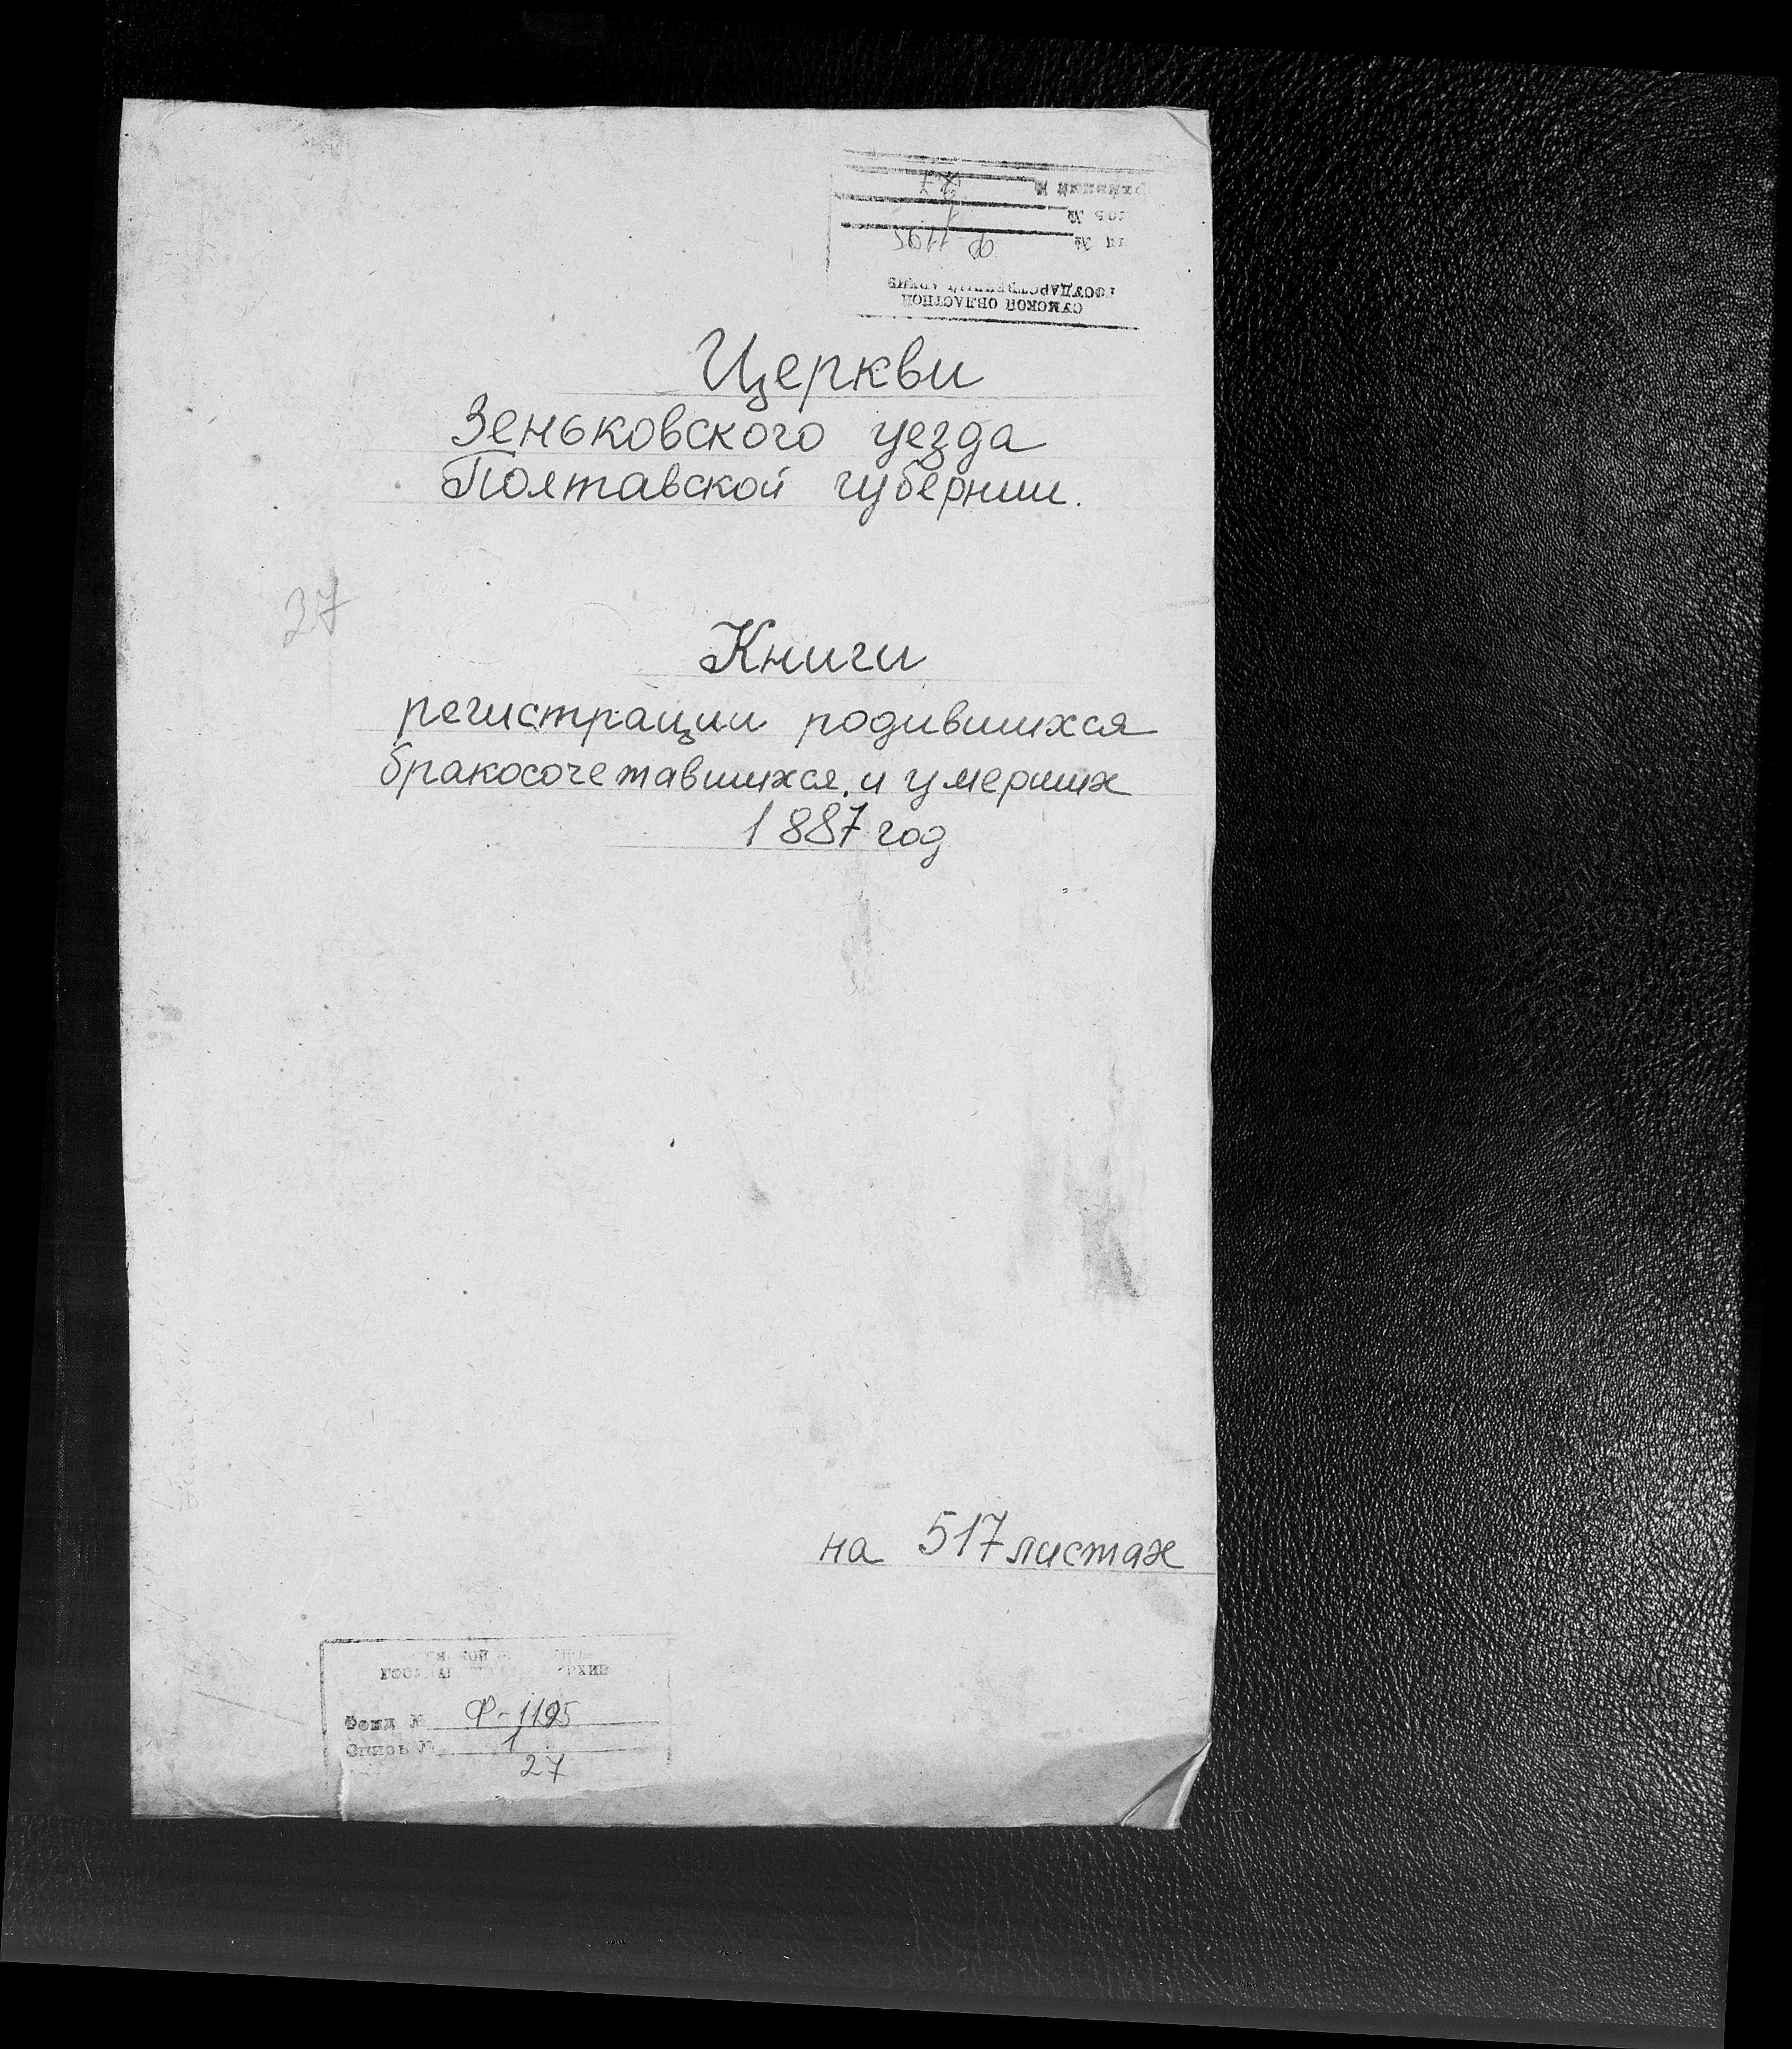 СУМСКОЙ ОБЛАСТНОЙ
ГОСУДАРСТВЕННЫЙ АРХИВ
№ Ф-1195
№ 1
27
Церкви
Зеньковского уезда
Полтавской губернии.
27
Книги
регистрации родившихся
бракосочетавшихся и умерших
1887 год
на 517 листах
Фонд № Ф-1195
Опись № 1
27